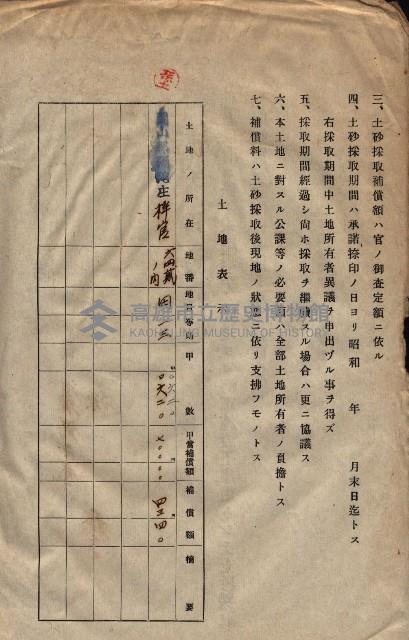 三、土砂採取補償額ハ官ノ御査定額ニ依ル
四、土砂採取期間ハ承諾捺印ノ日ヨリ昭和　年　月末日迄トス
右採取期間中土地所有者異議ヲ申出ヅル事ヲ得ズ
五、採取期間經過シ尚ホ採取ヲ繼續スル場合ハ更ニ協議ス
六、本土地ニ對スル公課等ノ必要
全部土地所有者ノ負擔トス
七、補償料ハ土砂採取後現地ノ狀態ニ依リ支拂フモノトス
土地表示
土地ノ所在
地番
地目
等則
甲數
甲當補償額
補償額
摘要
庄
六四貳
ノ内
〇六二〇
〇六二〇
高雄市立歷史博物館
KAOHSIUNG MUSEUM OF HISTORY